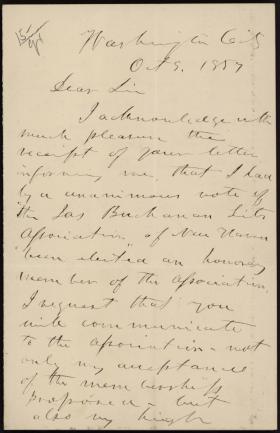 Washington City
Oct 9. 1857
Dear Sir
I acknowledge with
much pleasure the
receipt of your letter
informing me, that I had
by a unanimous vote of
"the Jas Buchanan Lit.
Association" of New Haven
been elected an honorary
member of the Association.
I request that you
will communicate
to the association - not
only my acceptance
of the membership
proposed - but
also my high